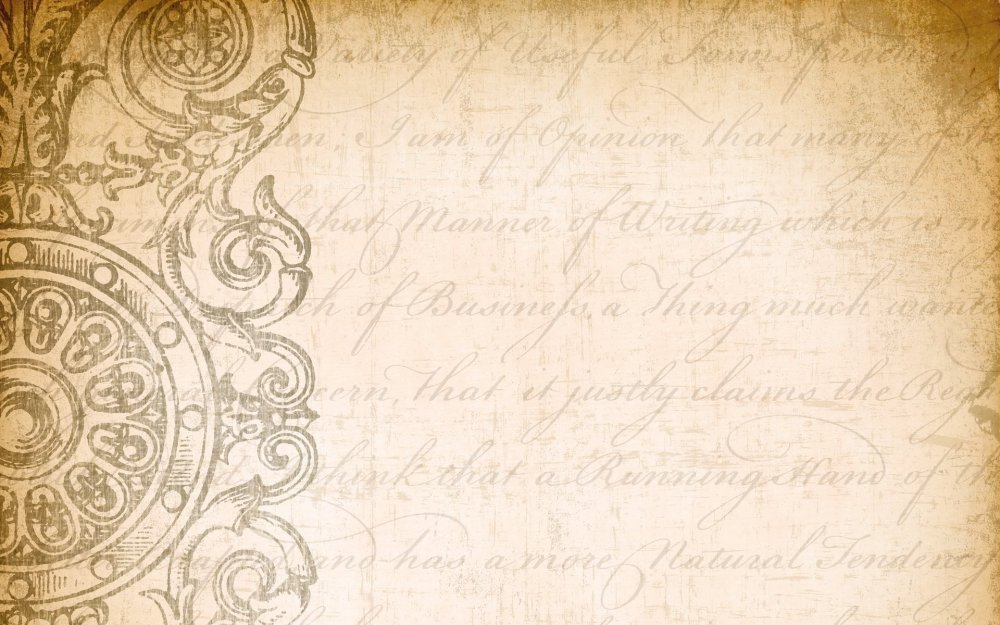 Variety of Useful Forms practised
Men, I am of Opinion that many of
that Manner of Writing which is
of Busineſs a Thing much
that it justly claims the
think that a Running Hand of
and has a more Natural Tendency